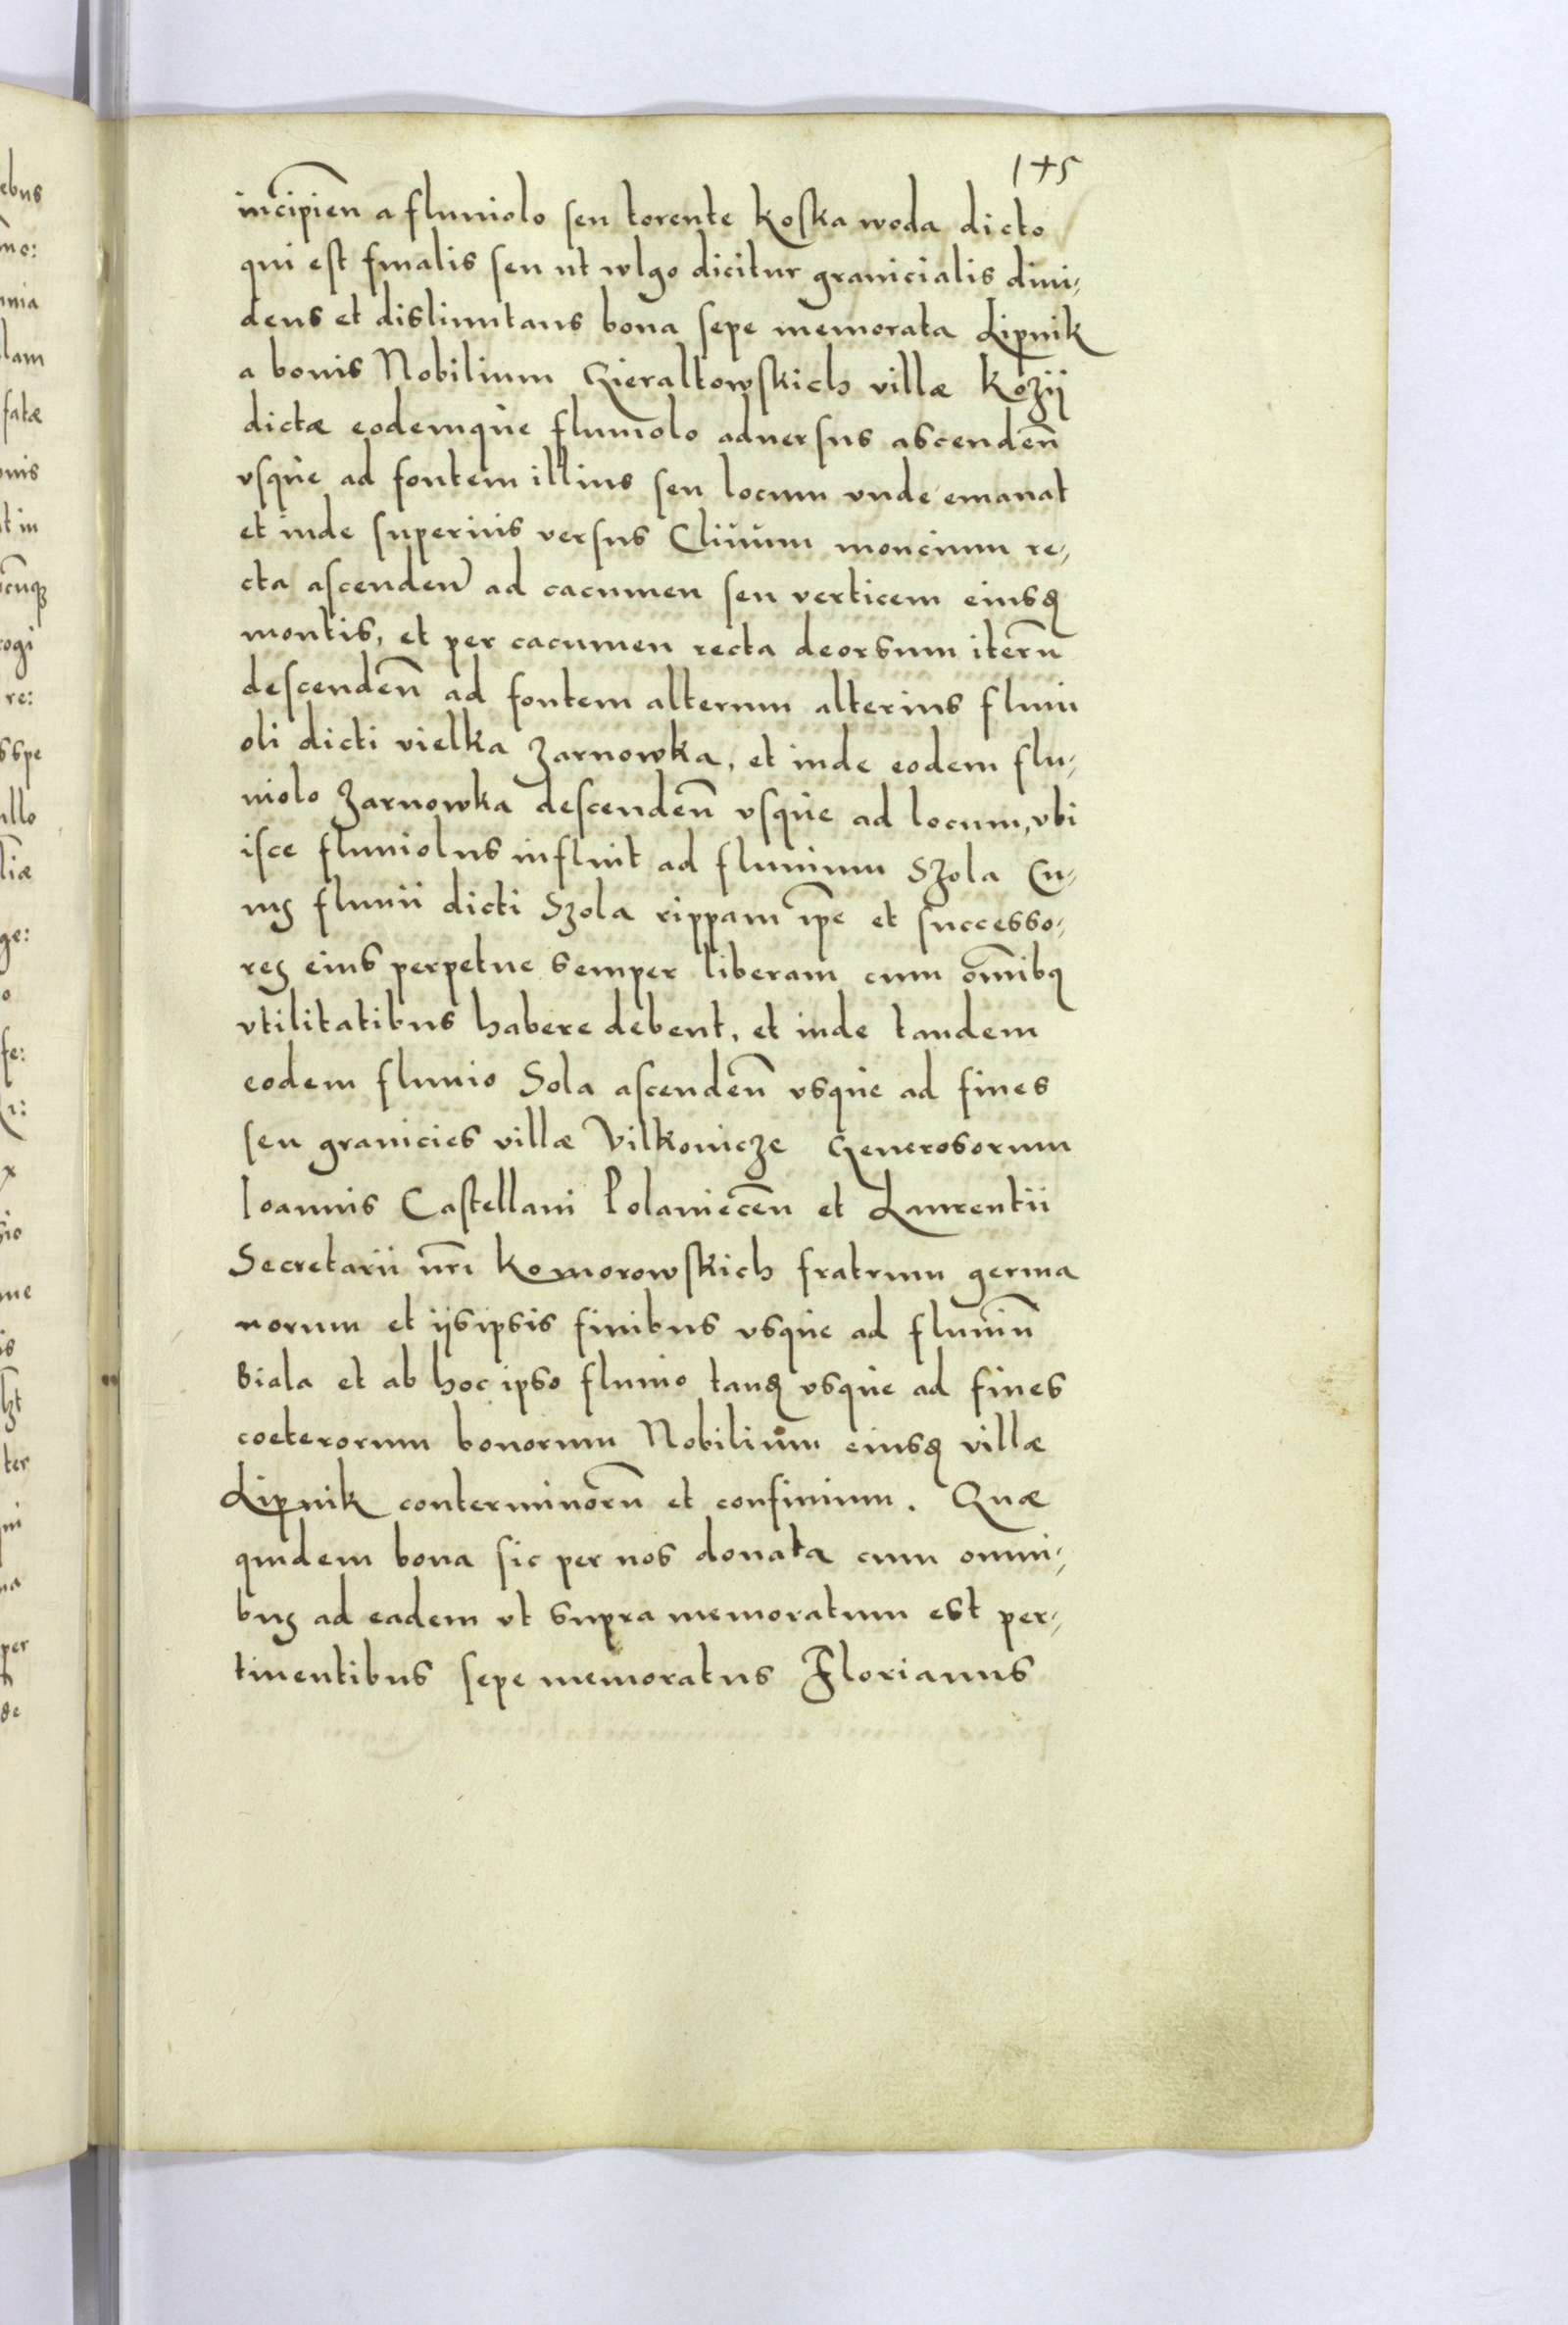 145
incipien̄ a fluuiolo seu torente Koska woda dicto
qui est finalis seu ut wlgo dicitur granicialis diui,
dens et dislimitans bona sepe memorata Lipnik
a bonis Nobilium Gieraltowskich villæ Kozij
dictæ eodemque fluuiolo aduersus ascenden̄
vsque ad fontem illius seu locum vnde emanat
et inde superius versus Cliuum moncium re,
cta ascenden̄ ad cacumen seu verticem eiusq̨
montis, et per cacumen recta deorsum iterū
descenden̄ ad fontem alterum alterius fluui
oli dicti vielka Zarnowka, et inde eodem flu,
uiolo Zarnowka descenden̄ vsque ad locum, vbi
isce fluuiolus influit ad fluuium Szola Cu,
iuȝ fluuii dicti Szola rippam ip̄e et successo,
reȝ eius perpetue semper liberam cum om̄ibꝯ
vtilitatibus habere debent, et inde tandem
eodem fluuio Sola ascenden̄ vsque ad fines
seu granicies villæ Vilkonicze Generosorum
Ioannis Castellani Polaniecen̄ et Laurentii
Secretarii nr̄i Komorowskich fratrum germa
norum et ijsipsis finibus vsque ad fluuiū
Biala et ab hoc ipso fluuio tanq̨ vsque ad fines
coeterorum bonorum Nobilium eiusq̨ villæ
Lipnik conterminorū et confinium. Quæ
quidem bona sic per nos donata cum omni,
buȝ ad eadem vt supra memoratum est per,
tinentibus sepe memoratus Florianus